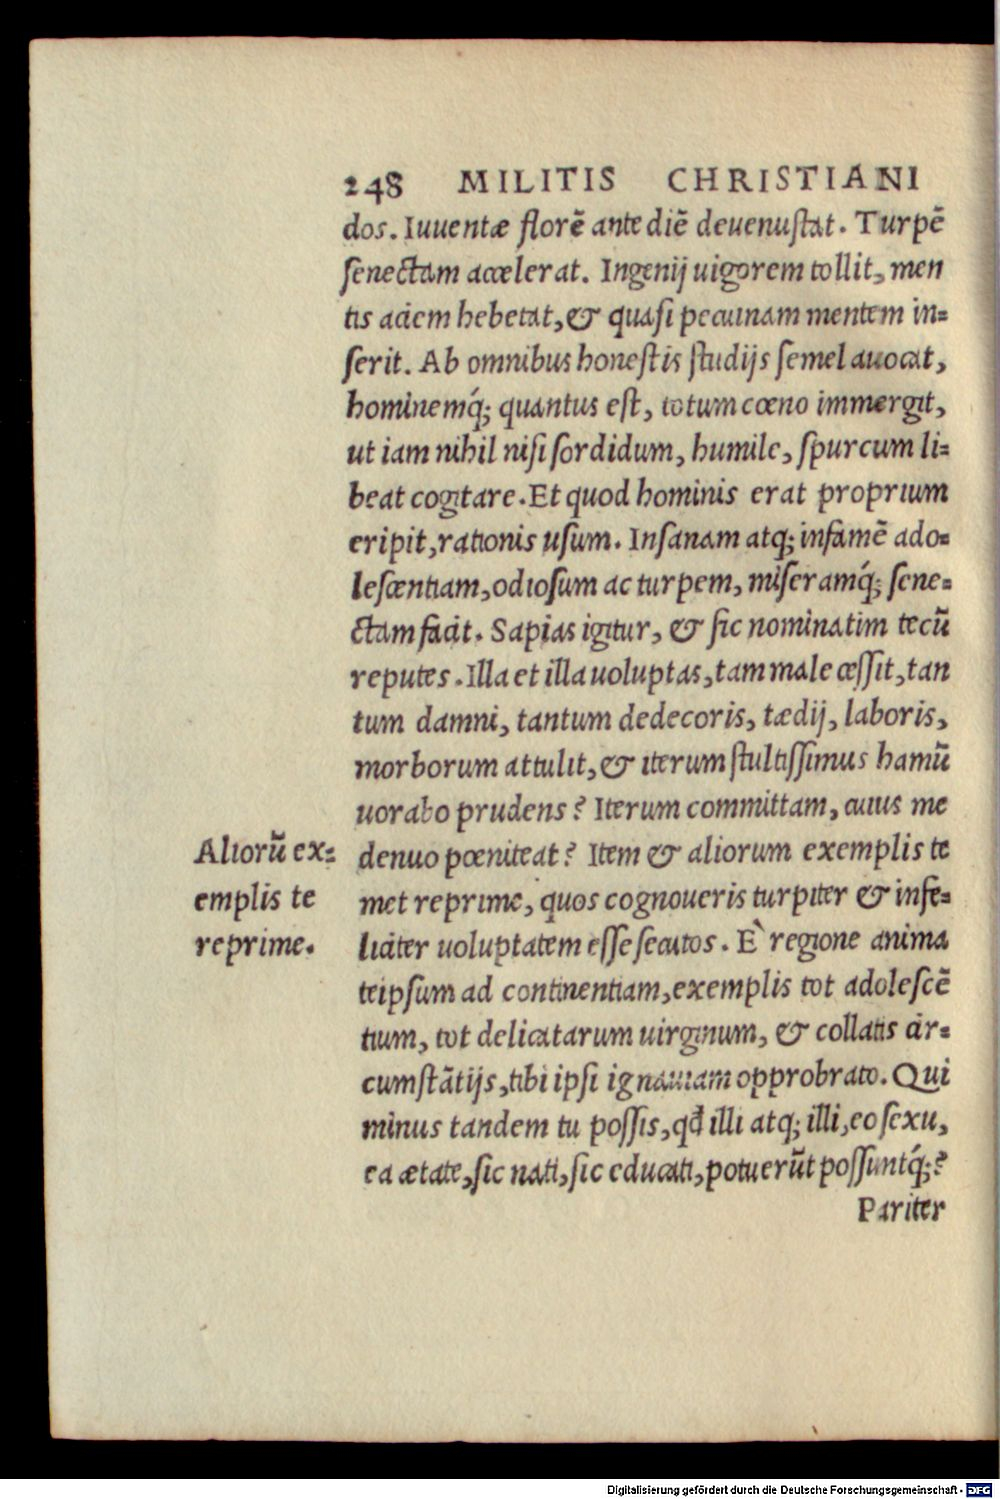 248 MILITIS CHRISTIANI
dos. Iuuentæ florẽ ante diẽ deuenustat. Turpẽ
senectam accelerat. Ingenij uigorem tollit, men
tis aciem hebetat, & quasi pecuinam mentem in=
serit. Ab omnibus honestis studijs semel auocat,
hominemq́; quantus est, totum cœno immergit,
ut iam nihil nisi sordidum, humile, spurcum li=
beat cogitare. Et quod hominis erat proprium
eripit, rationis usum. Insanam atq; infamẽ ado=
lescentiam, odiosum ac turpem, miseramq́; sene=
ctam facit. Sapias igitur, & sic nominatim tecũ
reputes. Illa et illa uoluptas, tam male cessit, tan
tum damni, tantum dedecoris, tædij, laboris,
morborum attulit, & iterum stultissimus hamũ
uorabo prudens? Iterum committam, cuius me
denuo pœniteat? Item & aliorum exemplis te
met reprime, quos cognoueris turpiter & infe=
liciter uoluptatem esse secutos. È regione anima
teipsum ad continentiam, exemplis tot adolescẽ
tium, tot delicatarum uirginum, & collatis cir=
cumstãtijs, tibi ipsi ignauiam opprobrato. Qui
minus tandem tu possis, qđ illi atq; illi, eo sexu,
ea ætate, sic nati, sic educati, potuerũt possuntq́;?
Pariter
Aliorũ ex=
emplis te
reprime.
Digitalisierung gefördert durch die Deutsche Forschungsgemeinschaft - DFG